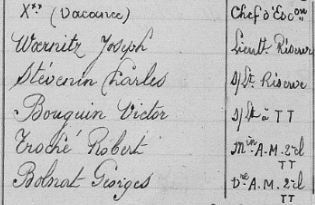 X** (Vacance) Chef d'Esc^on
Wærnitz Joseph Lieut^t Réserve
Stévenin Charles S/L^t Réserve
Bouquin Victor S/L^t à TT
Troché Robert M^in A.M. 2^e cl
TT
Bolnat Georges V^re A.M. 2^e cl
TT